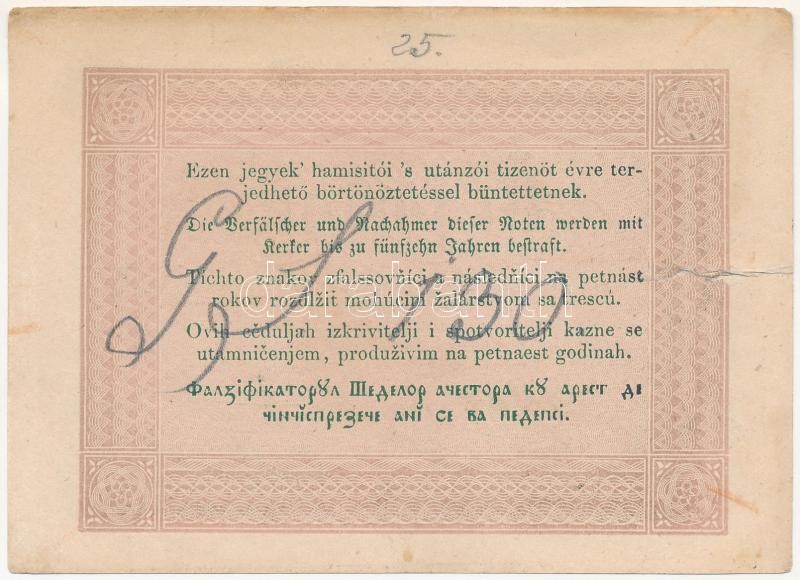 25.
Ezen jegyek' hamisitói 's utánzói tizenöt évre ter-
jedhető börtönöztetéssel büntettetnek.
Die Verfälscher und Nachahmer dieser Noten werden mit
Kerker bis zu fünfzehn Jahren bestraft.
Tíchto znakov zfalssovňíci a násleďňíci na petnást
rokov rozďlžiť mohúcim žalárstvom sa trescú.
darabanth
Ovih cěduljah izkrivitelji i spotvoritelji kazne se
utamničenjem, produživim na petnaest godinah.
Фалзіфікаторꙋл Шеделор ачестора кꙋ арест де
чінчіспрезече анї се ва педепсі.